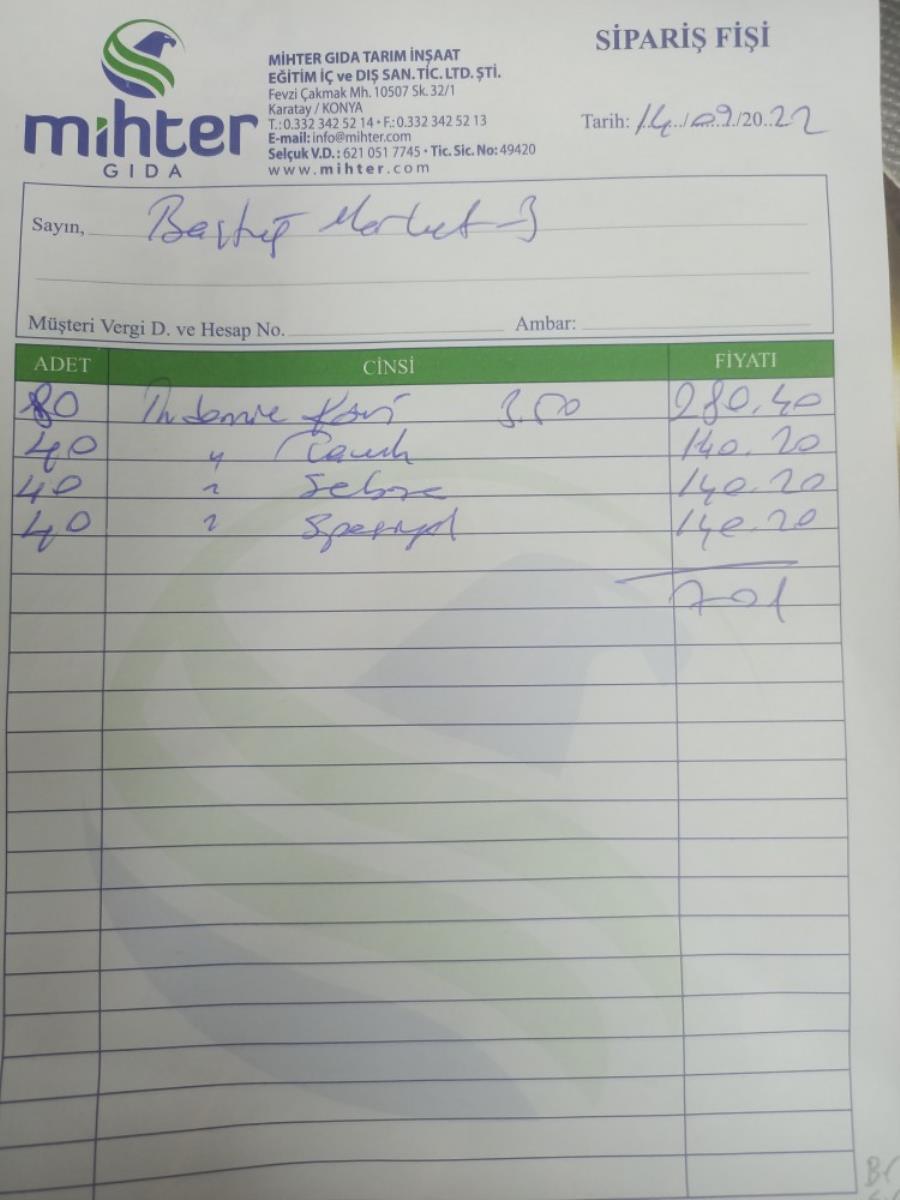 SİPARİŞ FİŞİ
mihter
GIDA
MİHTER GIDA TARIM İNŞAAT
EĞİTİM İÇ ve DIŞ SAN.TİC.LTD.ŞTİ.
Fevzi Çakmak Mh. 10507 Sk. 32/1
Karatay / KONYA
T.:0.332 342 52 14 • F.:0.332 342 52 13
E-mail: info@mihter.com
Selçuk V.D.: 621 051 7745 • Tic. Sic. No: 49420
www.mihter.com
Tarih: 14../..09../20..22
Sayın, Market-3
Müşteri Vergi D. ve Hesap No.
Ambar:
ADET CİNSİ FİYATI
80 Indomie Köri 3.50 280.40
40 " 140.20
40 " Sebze 140.20
40 " 140.20
701